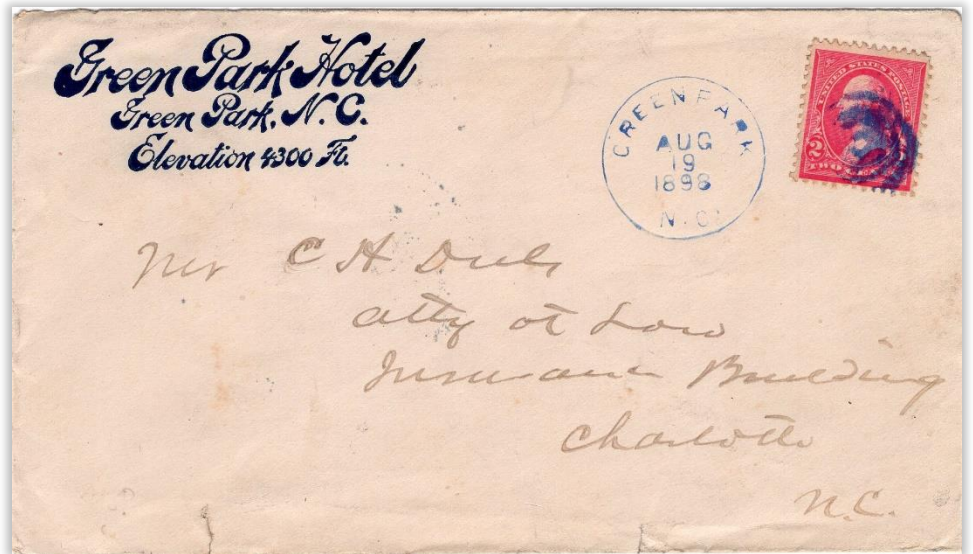 Green Park Hotel
Green Park, N. C.
Elevation 4300 Ft.
GREEN PARK
AUG
19
1898
N.C.
UNITED STATES POSTAGE
2
TWO
Mr C H Duls
atty at Law
Insurance Building
Charlotte
N.C.